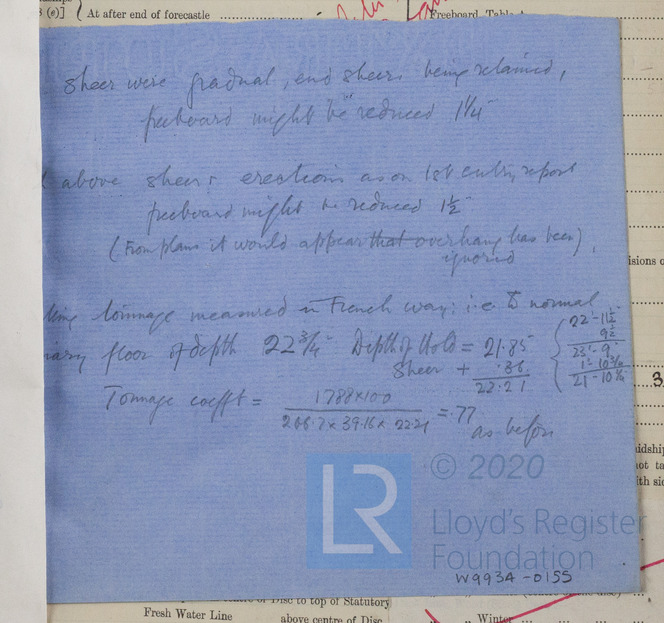 (e)] At after end of forecastle
Freeboard
sheer were gradual, end sheers being retained,
freeboard might be reduced 1 1/4"
above sheer & erections as on 1st entry report
freeboard might be reduced 1 1/2"
(From plans it would appear that overhang has been)
ignored
tonnage measured in French way: i.e. to normal
floor of depth 22 3/4" Depth of Hold = 21.85
Sheer + .36
22.21
22'-11 1/2
9 1/2
23'-9
1'-10 3/4
21-10 1/4
Tonnage coefft = 1788×100
208.7 × 39.16 × 22.21
= .77
as before
© 2020
LR
Lloyd's Register
Foundation
W993A-0155
of Disc to top of Statutory
Fresh Water Line
above centre of Disc
Winter